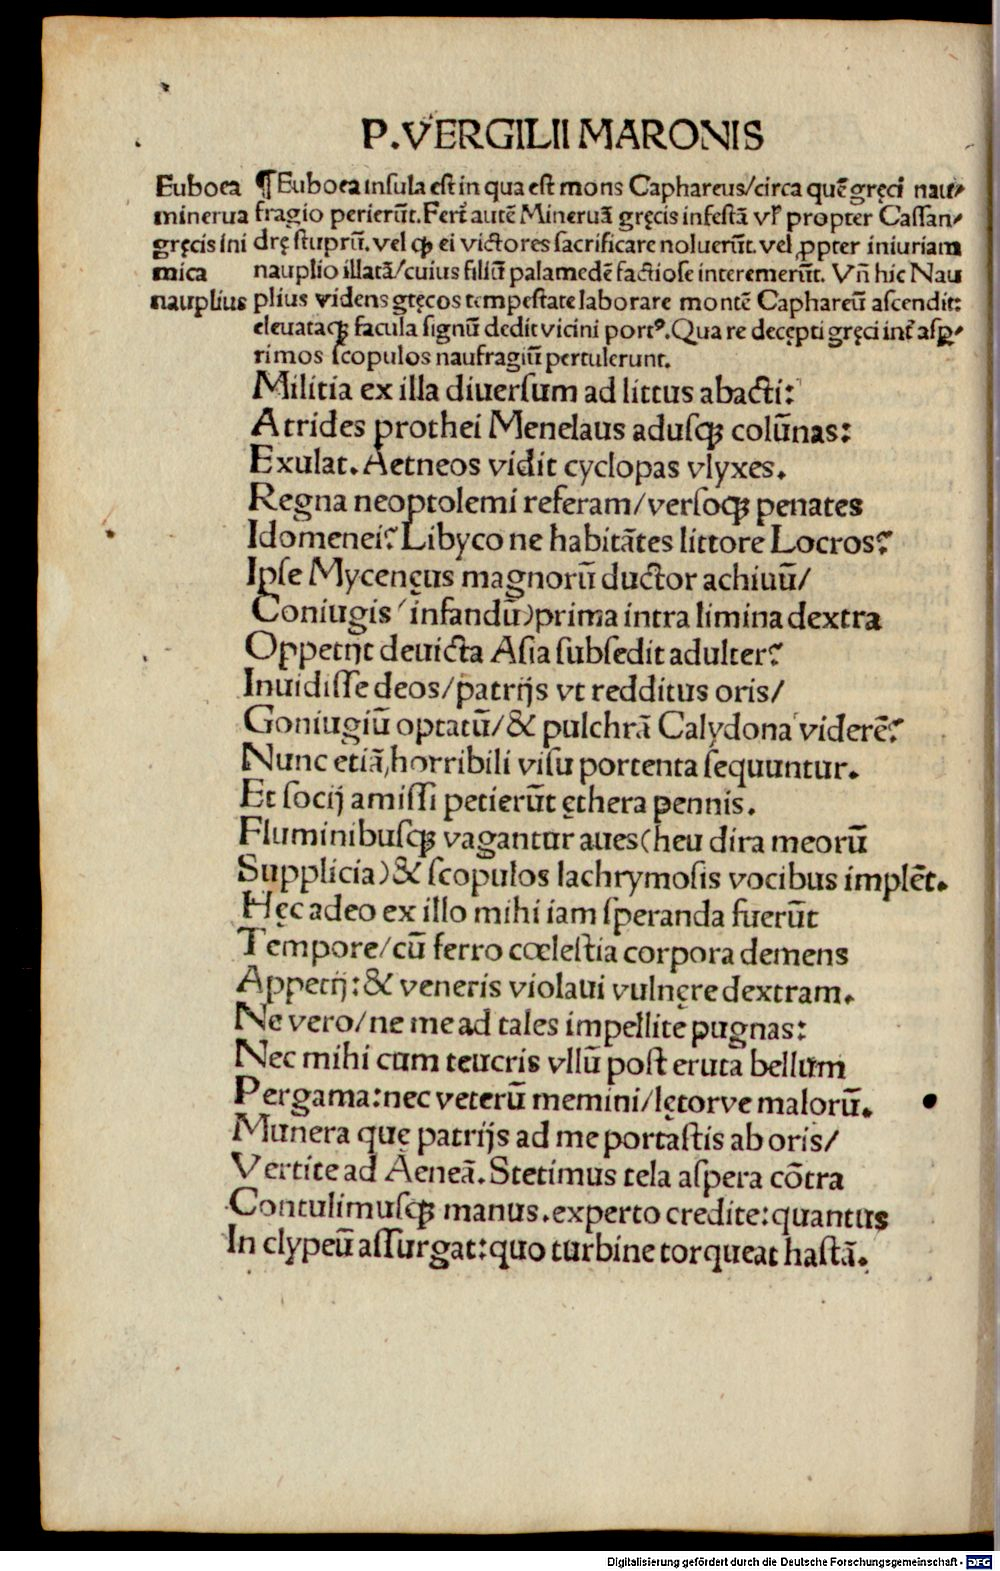 P.VERGILII MARONIS
Euboea ¶Euboea insula est in qua est mons Caphareus/circa quē gręci nau-
minerua fragio perierūt. Ferť autē Mineruā gręcis infestā vł propter Cassan-
gręcis ini drę stuprū. vel ꝙ ei victores sacrificare noluerūt. vel ꝓpter iniuriam
mica nauplio illatā/cuius filiū palamedē factiose interemerūt. Vñ hic Nau
nauplius plius videns gręcos tempestate laborare montē Caphareū ascendit:
eleuataqꝫ facula signū dedit vicini portꝰ. Qua re decępti gręci inť asꝑ-
rimos scopulos naufragiū pertulerunt.
Militia ex illa diuersum ad littus abacti:
Atrides prothei Menelaus adusqꝫ colūnas:
Exulat. Aetneos vidit cyclopas vlyxes.
Regna neoptolemi referam/versosqꝫ penates
Idomenei? Libyco ne habitātes littore Locros?
Ipse Mycenęus magnorū ductor achiuū/
Coniugis (infandū) prima intra limina dextra
Oppetijt deuicta Asia subsedit adulter?
Inuidisse deos/patrijs vt redditus oris/
Goniugiū optatū/& pulchrā Calydona viderē?
Nunc etiā, horribili visu portenta sequuntur.
Et socij amissi petierūt ęthera pennis.
Fluminibusqꝫ vagantur aues (heu dira meorū
Supplicia) & scopulos lachrymosis vocibus implēt.
Hęc adeo ex illo mihi iam speranda fuerūt
Tempore/cū ferro cœlestia corpora demens
Appetij: & veneris violaui vulnęre dextram.
Ne vero/ne me ad tales impellite pugnas:
Nec mihi cum teucris vllū post eruta bellum
Pergama: nec veterū memini/lętorve malorū.
Munera quę patrijs ad me portastis ab oris/
Vertite ad Aeneā. Stetimus tela aspera cōtra
Contulimusqꝫ manus. experto credite: quantus
In clypeū assurgat: quo turbine torqueat hastā.
Digitalisierung gefördert durch die Deutsche Forschungsgemeinschaft - DFG